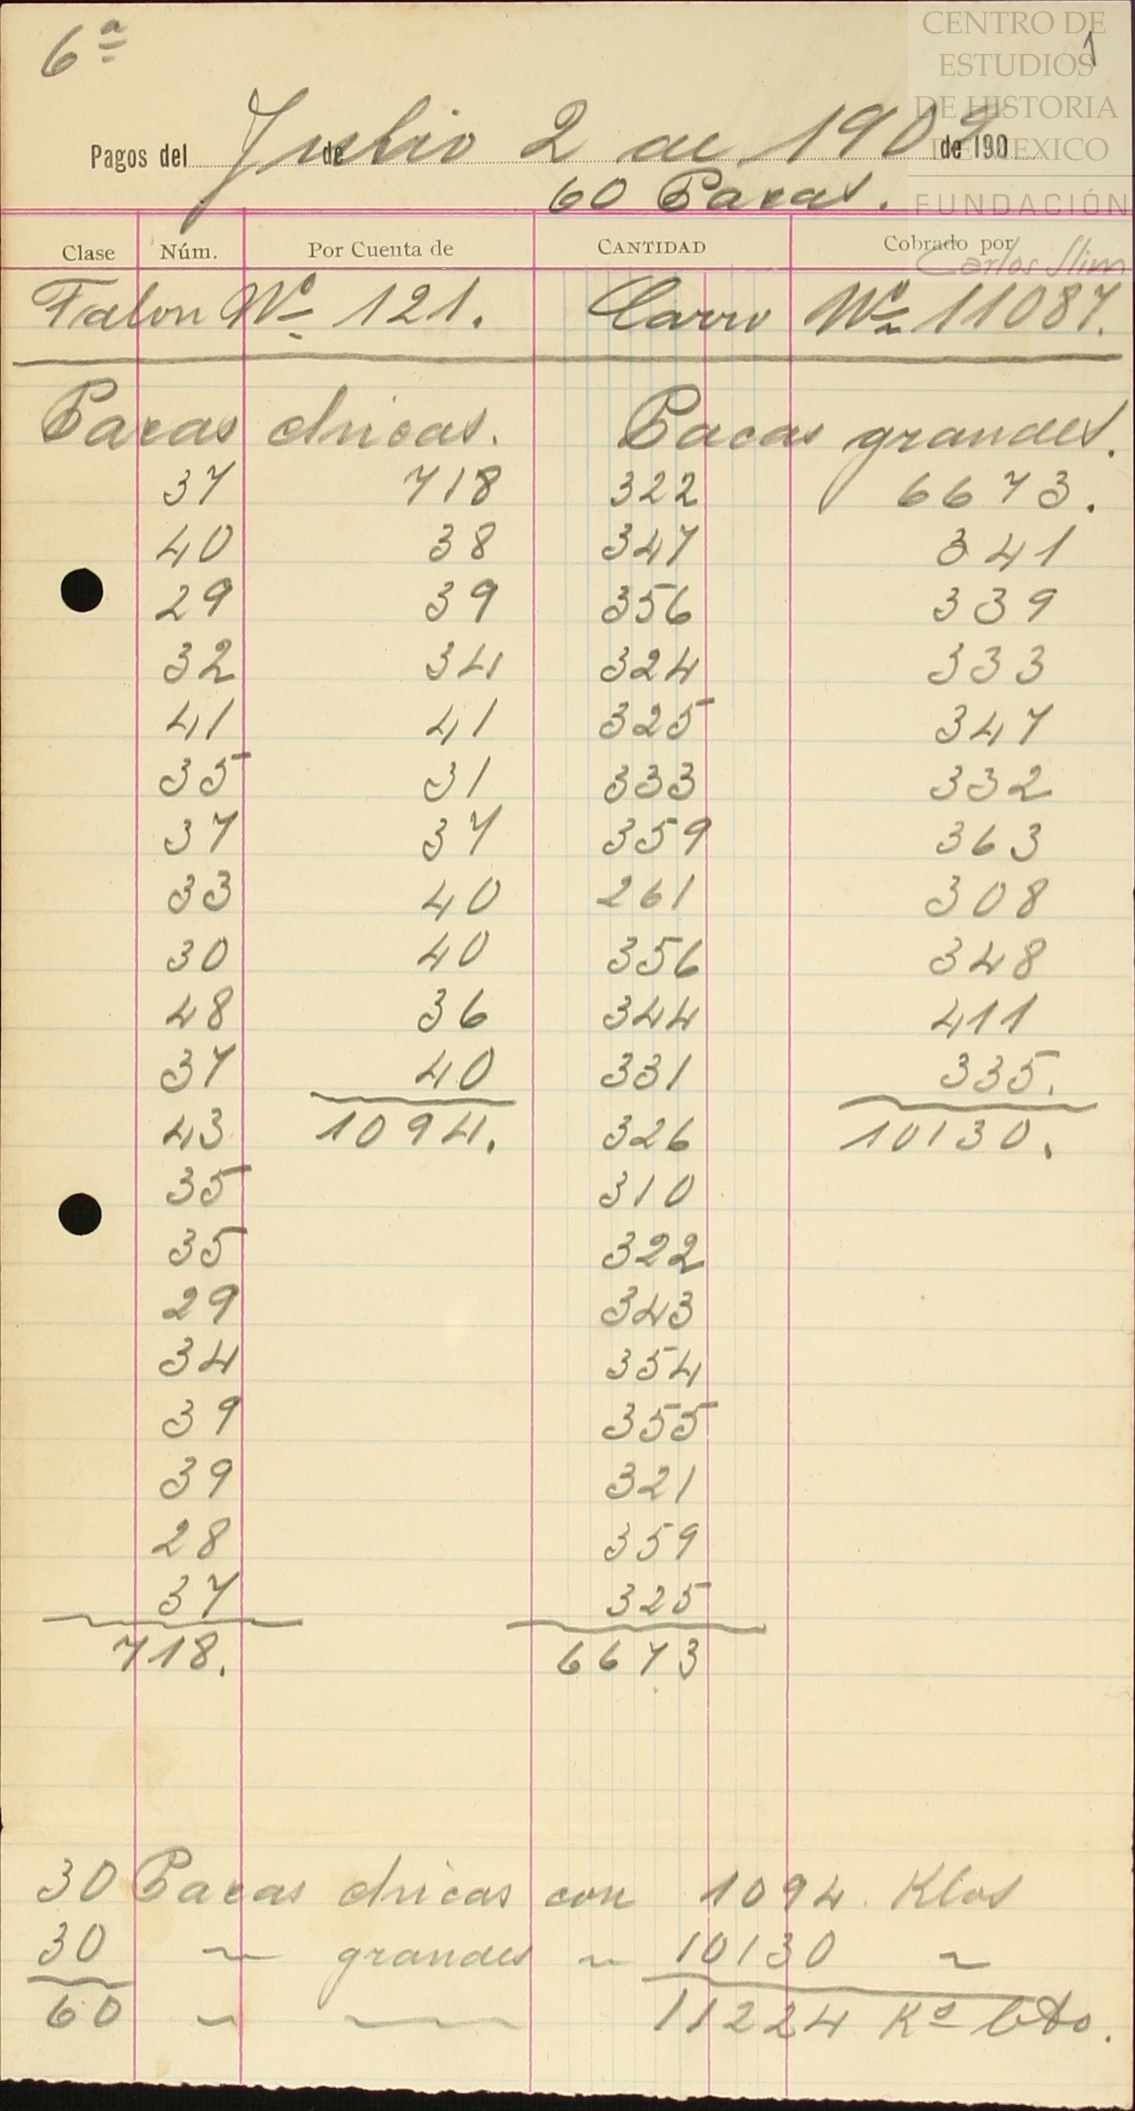 6ª
1
CENTRO DE
ESTUDIOS
DE HISTORIA
DE MEXICO
FUNDACIÓN
Carlos Slim
Pagos del Julio 2 de 1909 de de 190
60 Pacas.
Clase Núm. Por Cuenta de CANTIDAD Cobrado por
Talon Nº 121. Carro Nº 11087.
Pacas chicas. Pacas grandes.
37 718 322 6673.
40 38 347 341
29 39 356 339
32 34 324 333
41 41 325 347
35 31 333 332
37 37 359 363
33 40 261 308
30 40 356 348
48 36 344 411
37 40 331 335.
43 1094. 326 10130.
35 310
35 322
29 343
34 354
39 355
39 321
28 359
37 325
718. 6673
30 Pacas chicas con 1094 Klos
30 " grandes " 10130 "
60 " " 11224 Kº bto.